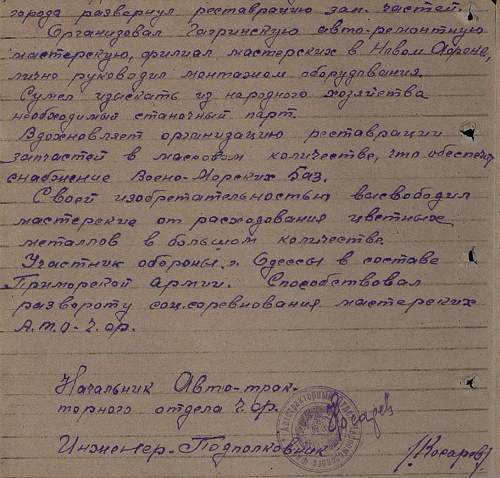 города развернул реставрацию зап. частей.
Организовал Гагринскую авто-ремонтную
мастерскую, филиал мастерских в Новом Афоне,
лично руководил монтажом оборудования.
Сумел изыскать из народного хозяйства
необходимый станочный парт.
Вдохновляет организацию реставрации
запчастей в массовом количестве, что обеспеч
снабжение Военно-Морских баз.
Своей изобретательностью высвободил
мастерские от расходования цветных
металлов в большом количестве.
Участник обороны г. Одессы в составе
Приморской армии. Способствовал
развороту соц.соревнования мастерских
А.Т.О-Ч.Ф.
Начальник Авто-трак-
торного отдела Ч.Ф.
Инженер-Подполковник /Косарев/